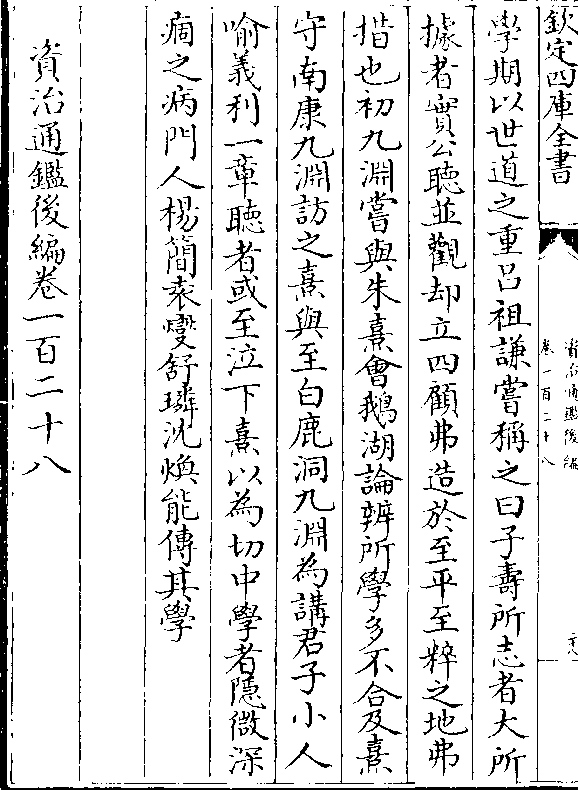 欽定四庫全書
資治通鑑後編
卷一百二十八
二十八
學期以世道之重呂祖謙嘗稱之曰子壽所志者大所
據者實公聽並觀却立四顧弗造於至平至粹之地弗
措也初九淵嘗與朱熹會鵝湖論辨所學多不合及熹
守南康九淵訪之熹與至白鹿洞九淵為講君子小人
喻義利一章聽者或至泣下熹以為切中學者隱微深
痼之病門人楊簡袁燮舒璘沈煥能傳其學
資治通鑑後編卷一百二十八